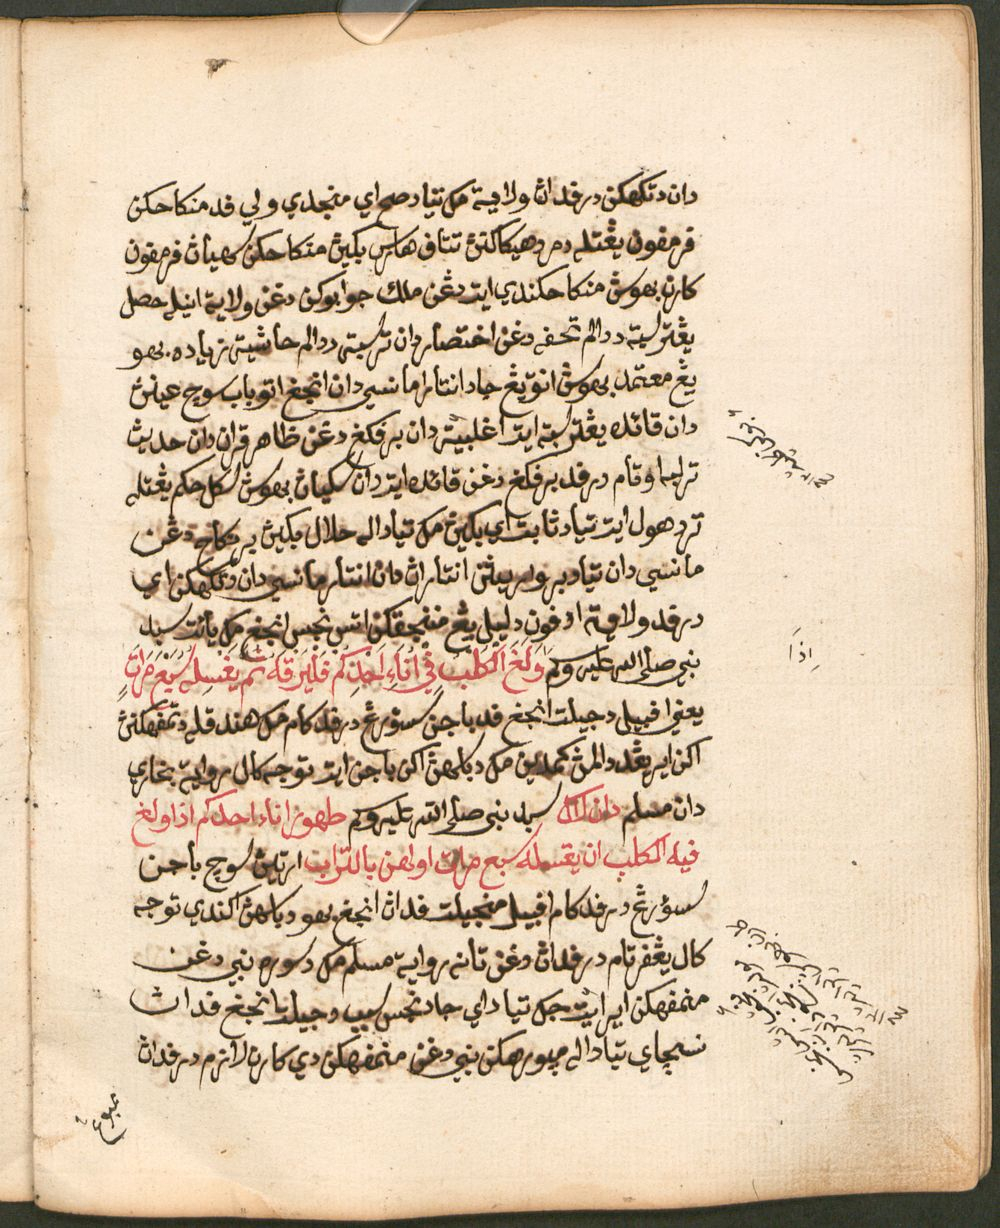 دان دتگهکن درفداڽ ولاية مک تياد صح اي منجدي ولي فد منکاحکن
فرمفون يڠتله دمردهيکاکنڽ تتاف هارس بݢيڽ منکاحکن سهياڽ فرمفون
کارن بهوسڽ منکاحکندي ايت دڠن ملك جوا بوکن دڠن ولاية انيله حصل
يڠترسبة ددالم تحفه دڠن اختصار دان ترسبة ددالم حاشيتڽ زياده. بهو
يڠ معتمد بهوسڽ انق يڠ جاد انتارا مانسي دان انجڠ ايت باب سوچ عينڽ
دان قائده يڠترسبة ايت اغلبية دان برفݢڠ دڠن ظاهر قران دان حديث
ترلبه اوتام درفد برفݢڠ دڠن قائده ايت دان سکيان بهوسڽ سݢل حکم يڠتله
تردهول ايت تياد ثابت اي بݢيڽ مک تيادله حلال بݢيڽ برنکاح دڠن
مانسي دان تياد بروارثن انتاراڽ دان انتار مانسي دان دتݢهکن اي
درفد ولاية ادفون دليل يڠ منونجقکن اتس نجس انجڠ مک يائت سبد
نبي صلى الله عليه وسلم وَلَغَ الکَلْبُ فِي اِنَاءِ اَحَدِکُمْ فَلْيُرِقْهُ ثُمَّ لْيَغْسِلْهُ سَبْعَ مَرَّاتٍ
يعني افبيل دجيلت انجڠ فد باجن سسؤرڠ درفد کامو مک هندقله دتمفهکنڽ
اکن اير يڠددالمڽ کمدين مک دباسهڽ اکن باجن ايت توجه کالي رواية بخاري
دان مسلم دان لاݢي سبد نبي صلى الله عليه وسلم طهور اناء احدکم اذا ولغ
فيه الکلب ان يغسله سبع مرات اولهن بالتراب ارتيڽ سوچ باجن
سسؤرڠ درفد کامو افبيل منجيلت فداڽ انجڠ بهو دباسهڽ اکندي توجه
کالي يڠفرتام درفداڽ دڠن تانه رواية مسلم مک دسوره نبي دڠن
منمفهکن اير ايت جک تياد اي جاد نجس سبب دجيلت انجڠ فداڽ
نسچاي تيادله مپورهکن نبي دڠن منمفهکن دي کارن لازم درفداڽ
اِذَا